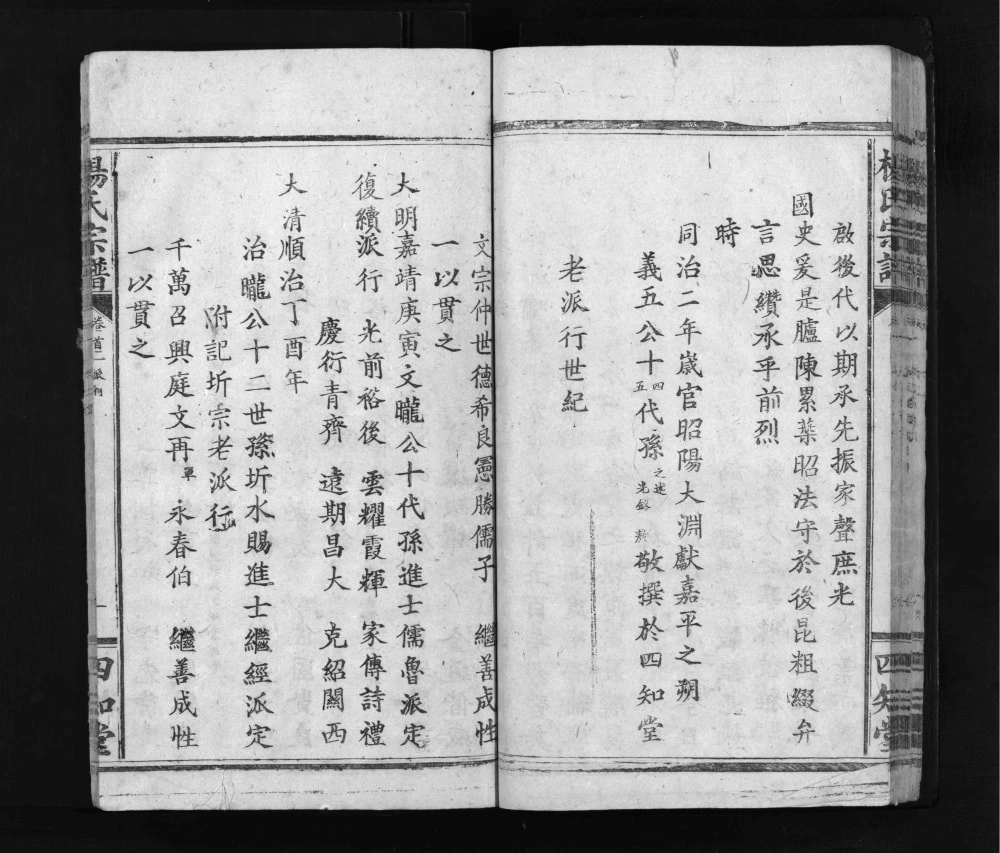 啟後代以期承先振家聲庶光
國史爰是臚陳累葉昭法守於後昆粗綴弁
言思纘承乎前烈
時
同治二年歲官昭陽大淵獻嘉平之朔
義五公十四五代孫之述光錄敬撰於四知堂
老派行世紀
文宗仲世德希良憲勝儒子 繼善成性
一以貫之
大明嘉靖庚寅文矓公十代孫進士儒魯派定
復續派行 光前裕後 雲耀霞輝 家傳詩禮
慶衍青齊 遠期昌大 克紹關西
大清順治丁酉年
治矓公十二世孫圻水賜進士繼經派定
附記圻宗老派行
千萬召興庭文再單 永春伯 繼善成性
一以貫之
楊氏宗譜
卷首二
一
四知堂